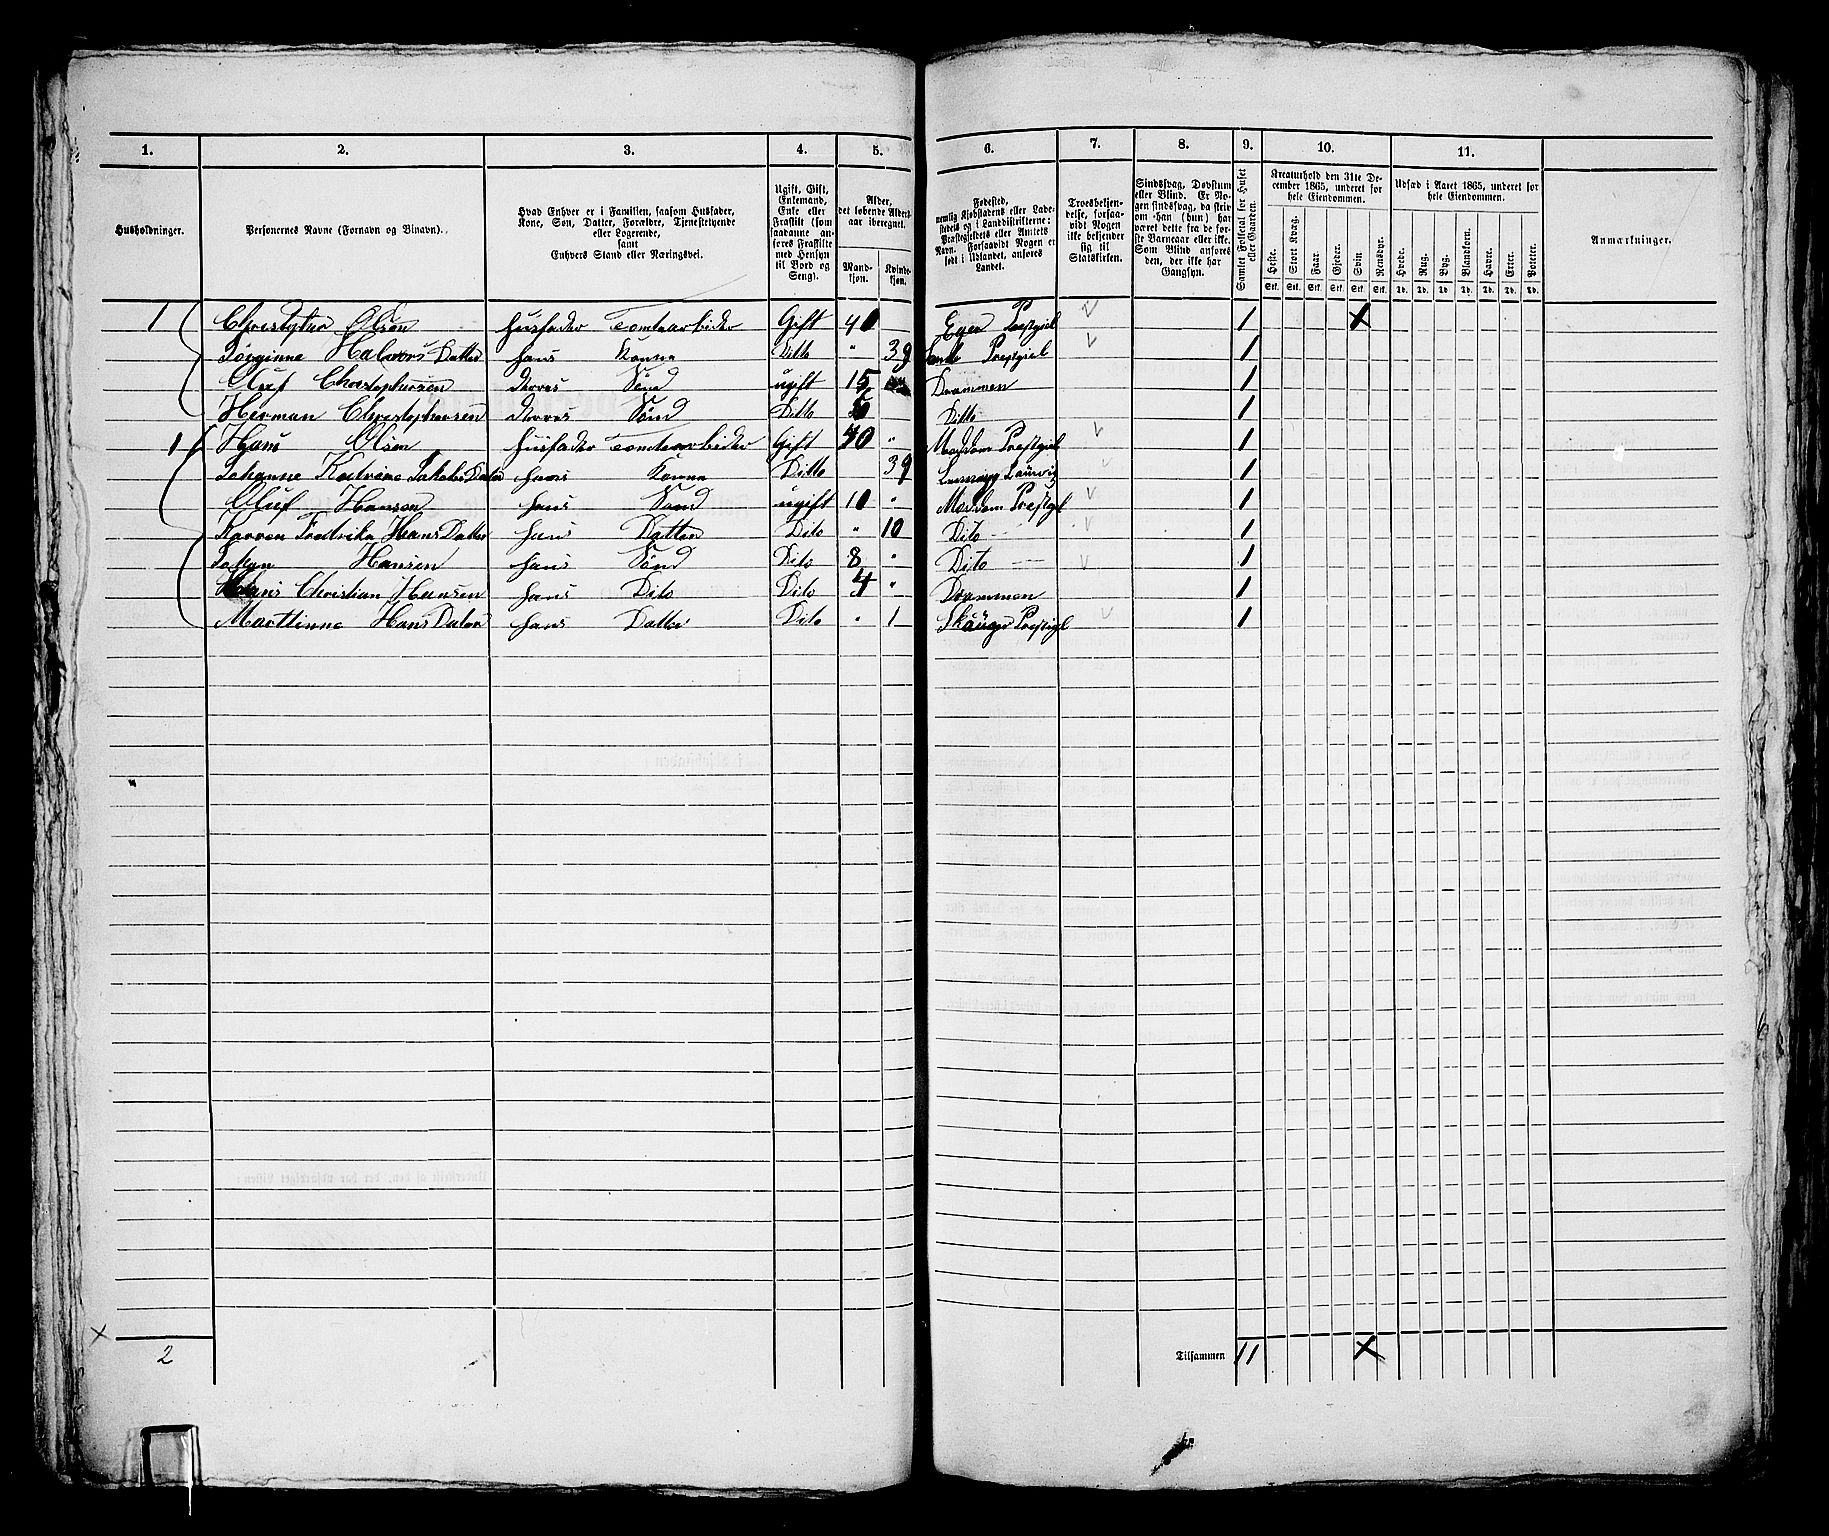 1. 2. 3. 4. 5. 6. 7. 8. 9. 10. 11.
Husholdninger.
Personernes Navne (Fornavn og Binavn).
Hvad Enhver er i Familien, saasom Husfader,
Kone, Søn, Datter, Forældre, Tjenestetyende
eller Logerende,
samt
Enhvers Stand eller Næringsvei.
Ugift, Gift,
Enkemand,
Enke eller
Fraskilt (som
saadanne an-
føres Fraskilte
med Hensyn
til Bord og
Seng).
Alder,
det løbende Alders-
aar iberegnet.
Mand-
kjøn.
Kvinde-
kjøn.
Fødested,
nemlig Kjøbstadens eller Lade-
stedets og i Landdistrikterne:
Præstegjeldets eller Amtets
Navn. Forsaavidt Nogen er
født i Udlandet, anføres
Landet.
Troesbekjen-
delse, forsaa-
vidt Nogen
ikke bekjender
sig til
Statskirken.
Sindssvag, Døvstum
eller Blind. Er No-
gen sindssvag, da skriv
om han (hun) har
været dette fra de før-
ste Barneaar eller ikke.
Som Blind anføres
den, der ikke har
Gangsyn.
Samlet Folketal for Huset
eller Gaarden.
Kreaturhold den 31te De-
cember 1865, underet for
hele Eiendommen.
Heste. Stort Kvæg. Faar. Gjeder. Svin. Rensdyr.
Stk. Stk. Stk. Stk. Stk. Stk.
Udsæd i Aaret 1865, underet for
hele Eiendommen.
Hvede. Rug. Byg. Blandkorn. Havre. Erter. Poteter.
Td. Td. Td. Td. Td. Td. Td.
Anmærkninger.
1 Christopher Olsen Husfader Tomtearbider Gift 40 Eger Prestgiel 1
Halvors Datter hans Konne Ditto " 39 Sande Prestgiel 1
Oluf Christophersen Ugift 15 Drammen 1
Herman Christophersen Ditto Ditto 1
1 Hans Olsen Husfader Tomtearbider Gift 40 " Prestgiel 1
Johanne Katrine Jakobs Dater hans Konne Ditto 39 1
Oluf Hansen hans Sønd ugift 10 " Prestgl 1
Karren Fredrika Hans Datter hans Datter Dito " 10 Dito 1
Johan Hansen hans Sønd Dito 8 " Dito 1
Hans Christian Hansen hans Dito Dito 4 " Drammen 1
Marttinne Hans Dater hans Datter Dito " 1 Skauger Prestgl 1
2 Tilsammen 11